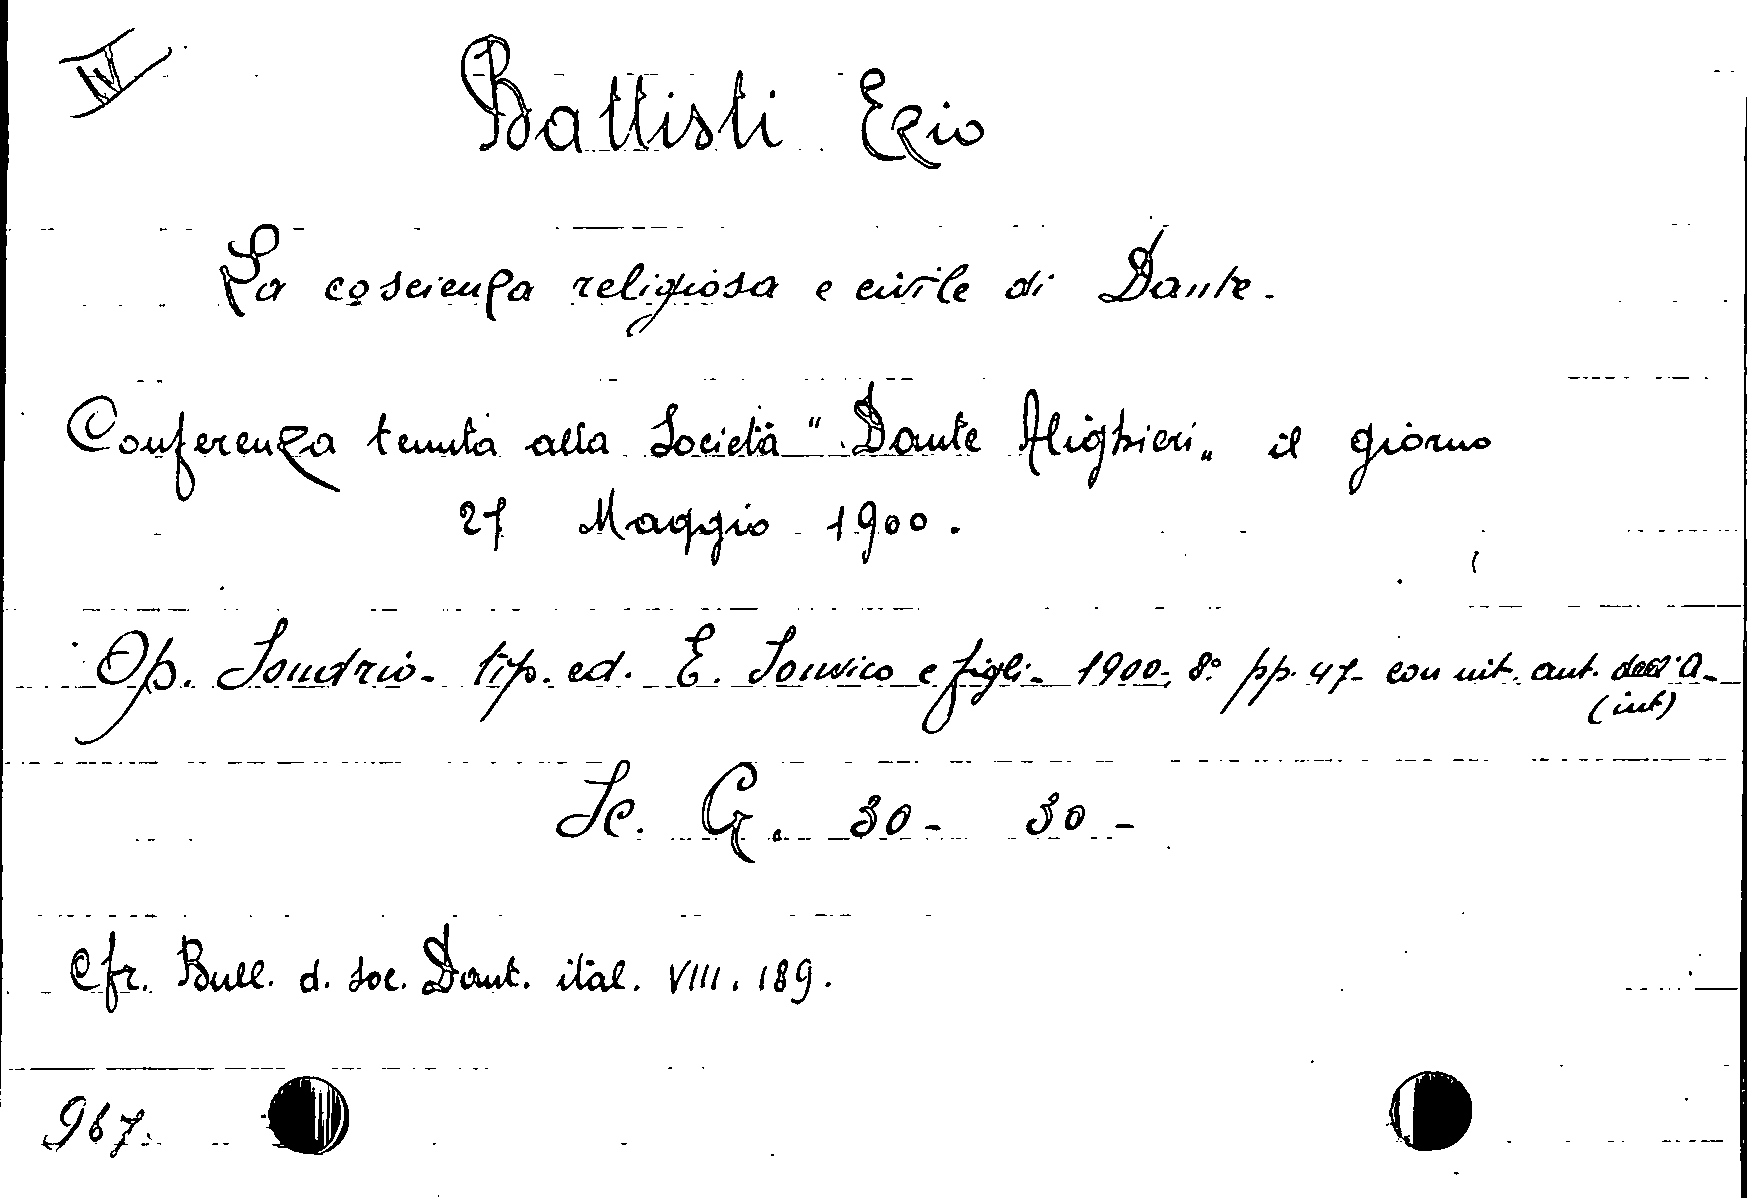 IV
Battisti Ezio
La coscienza religiosa e civile di Dante.
Conferenza tenuta alla Società " Dante Alighieri „ il giorno
27 Maggio 1900.
Op. Sondrio - tip. ed. E. Sonvico e figli - 1900 - 8° pp. 47 - con aut. dell'A -
(int)
Sc. G. 30 - 30 -
Cfr. Bull. d. soc. Dant. ital. VIII. 189.
967.